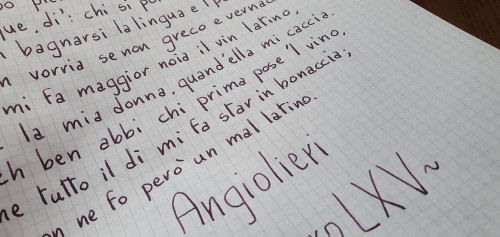 lue. di': chi si po
bagnarsi la lingua e
vorria se non greco e vernac
mi fa maggior noia il vin latino,
la mia donna. quand'ella mi caccia.
ben abbi chi prima pose 'l vino,
tutto il dì mi fa star in bonaccia;
non ne fo però un mal latino.
Angiolieri
LXV~